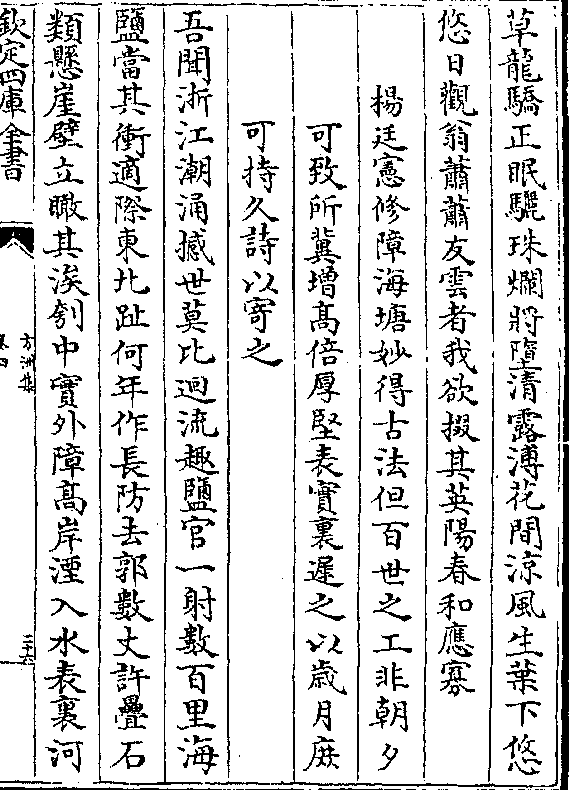 草龍驕正眠驪珠爛將墮清露溥花間涼風生葉下悠
悠日觀翁蕭蕭友雲者我欲掇其英陽春和應寡
楊廷憲修障海塘妙得古法但百世之工非朝夕
可致所冀增髙倍厚堅表實裏遲之以歳月庶
可持久詩以寄之
吾聞浙江潮涌撼世莫比迴流趣鹽官一射數百里海
鹽當其衝適際東北趾何年作長防去郭數丈許疊石
類懸崖壁立瞰其涘刳中實外障髙岸湮入水表裏河
欽定四庫全書
方洲集
卷四
三十六